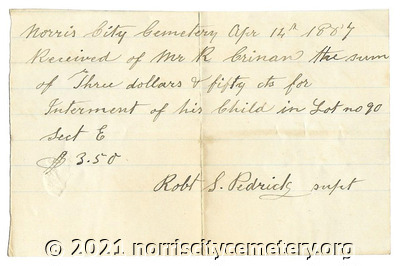 Norris City Cemetery Apr 14th 1887
Received of Mr R Crinan the sum
of Three dollars & fifty cts for
Interment of his Child in Lot no 90
Sect E
$ 3.50
Robt S. Pedrick supt
© 2021 norriscitycemetery.org